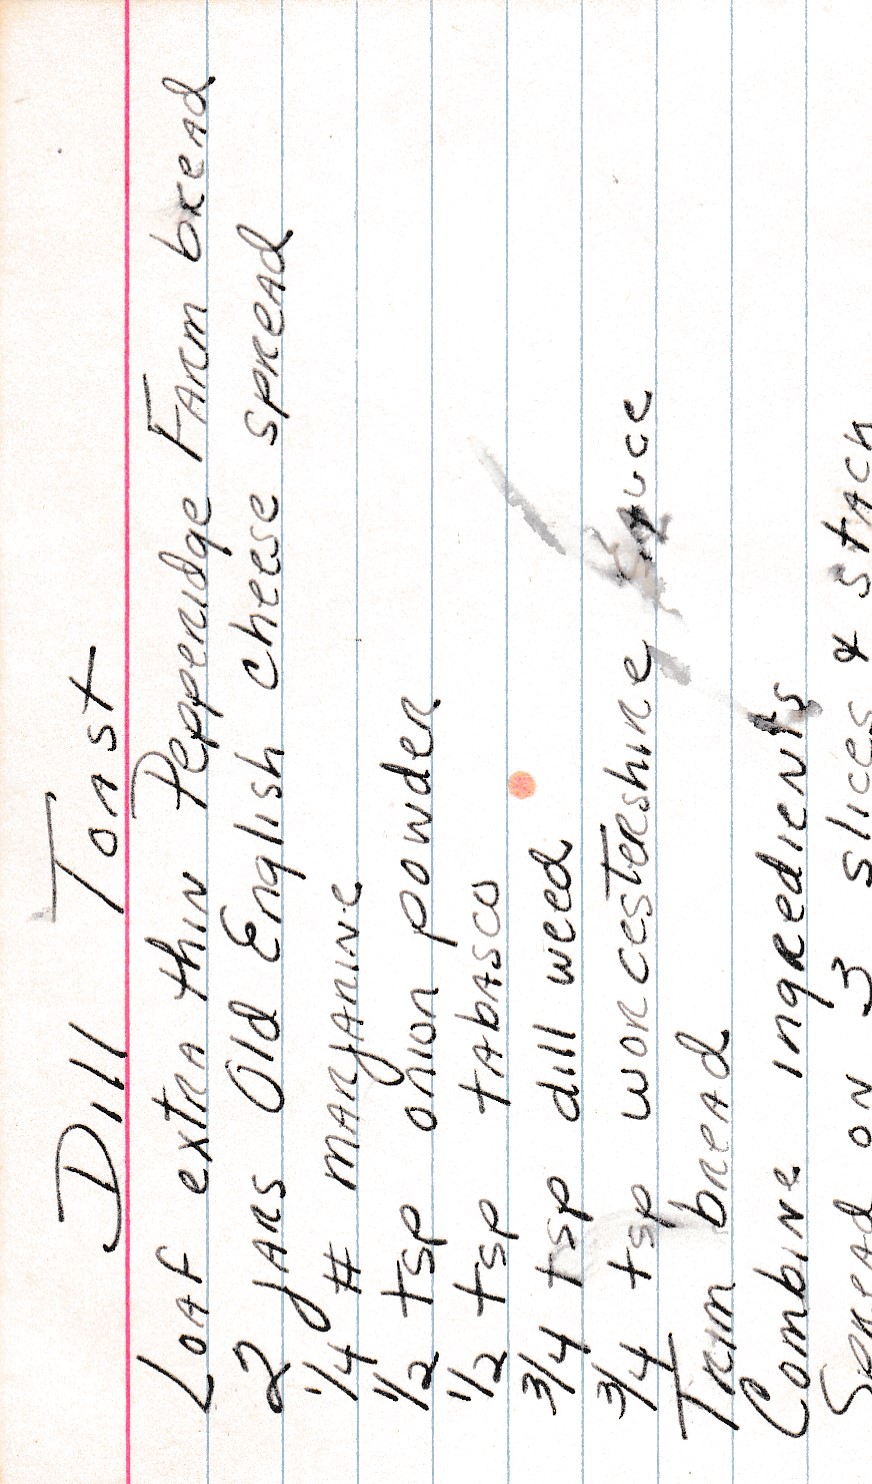 Dill Toast
Loaf extra thin Pepperidge Farm bread
2 jars Old English cheese spread
1/4 # marjarine
1/2 tsp onion powder
1/2 tsp tabasco
3/4 tsp dill weed
3/4 tsp worcestershire sauce
Trim bread
Combine ingredients
Spread on 3 slices & stack